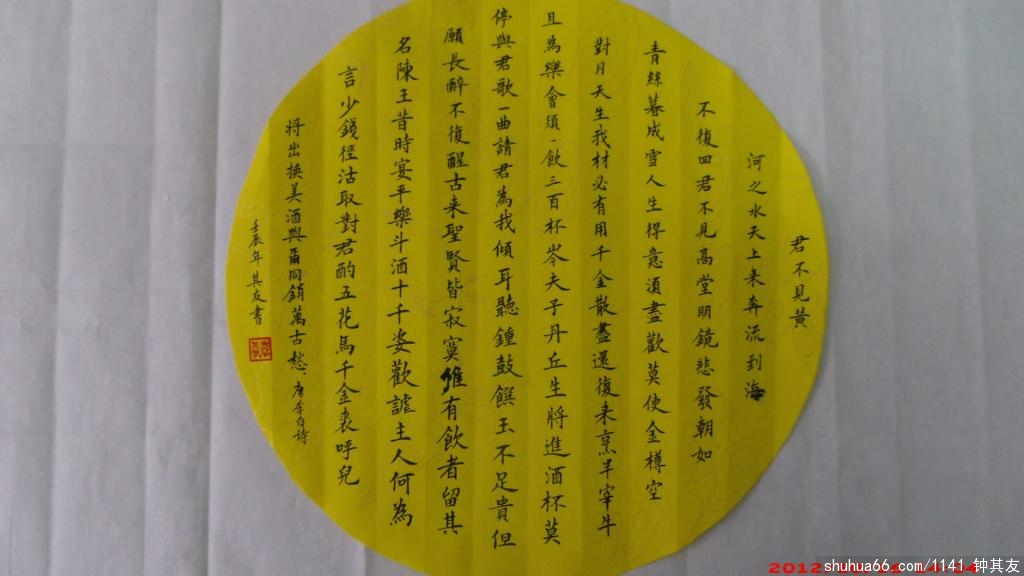 君不見黃
河之水天上来奔流到海
不復囬君不見高堂明鏡悲發朝如
青絲暮成雪人生得意須盡歡莫使金樽空
對月天生我材必有用千金散盡還復来烹羊宰牛
且為樂會須一飲三百杯岑夫子丹丘生將進酒杯莫
停與君歌一曲請君為我傾耳聽鍾鼓饌玉不足貴但
願長醉不復醒古来聖賢皆寂寞惟有飲者留其
名陳王昔時宴平樂斗酒十千姿歡謔主人何為
言少錢徑沽取對君酌五花馬千金裘呼兒
将出換美酒與爾同銷萬古愁 唐李白诗
壬辰年其友書
2012
shuhua66.com/1141 钟其友